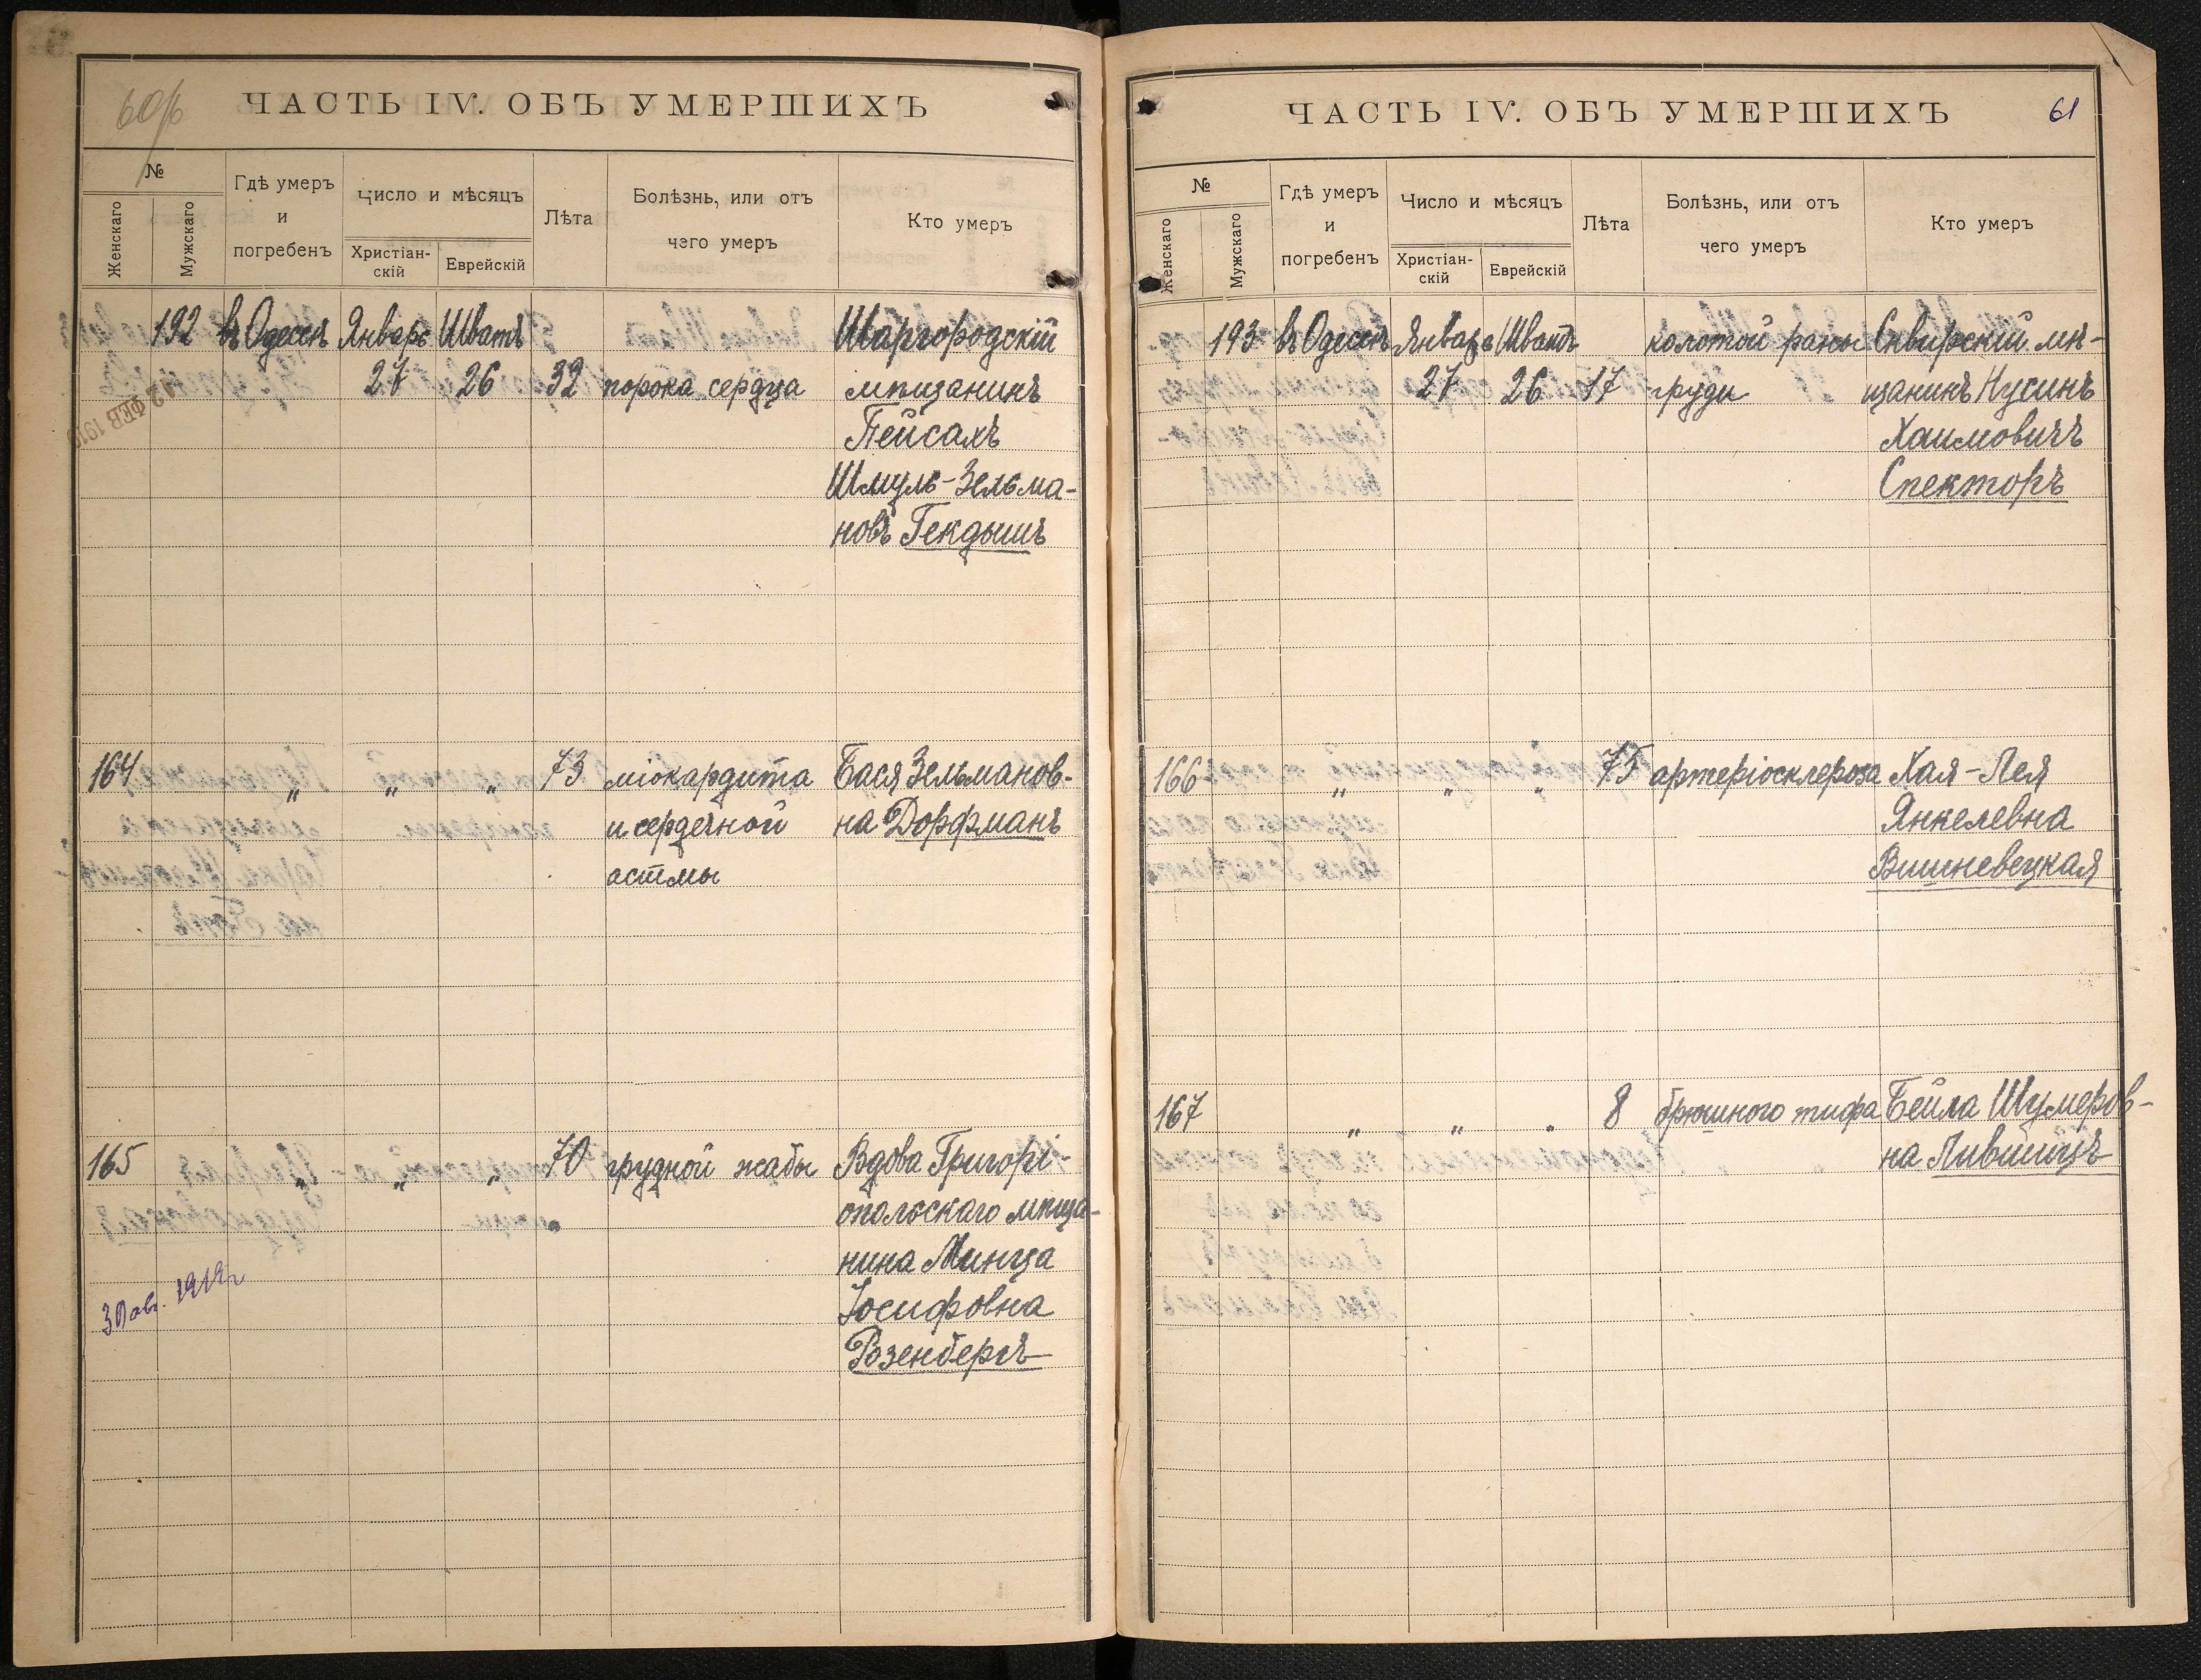 60/б
ЧАСТЬ IV. ОБЪ УМЕРШИХЪ
№
Женскаго
Мужскаго
Гдѣ умеръ
и
погребенъ
Число и мѣсяцъ
Христіан-
скій
Еврейскій
Лѣта
Болѣзнь, или отъ
чего умеръ
Кто умеръ
192 въ Одессѣ Январь Шватъ Шаргородскій
27 26 32 порока сердца мѣщанинъ
Пейсахъ
Шмуль-Зельма-
новъ Гекдышъ
12 ФЕВ 1919
164 „ „ „ 73 міокардита Бася Зельманов-
и сердечной на Дорфманъ
астмы
165 „ „ „ 70 грудной жабы Вдова Григорі-
опольскаго мѣща-
нина Минца
Іосифовна
Розенбергъ
1919г
ЧАСТЬ IV. ОБЪ УМЕРШИХЪ
61
№
Женскаго
Мужскаго
Гдѣ умеръ
и
погребенъ
Число и мѣсяцъ
Христіан-
скій
Еврейскій
Лѣта
Болѣзнь, или отъ
чего умеръ
Кто умеръ
193 въ Одессѣ Январь Шватъ колотой раны Сквирскій мѣ-
27 26 17 груди щанинъ Нусинъ
Хаимовичъ
Спекторъ
166 „ „ „ 75 артеріосклероза Хая-Лея
Янкелевна
Вишневецкая
167 „ „ „ 8 брюшного тифа Бейла Шумеров-
на Лившицъ